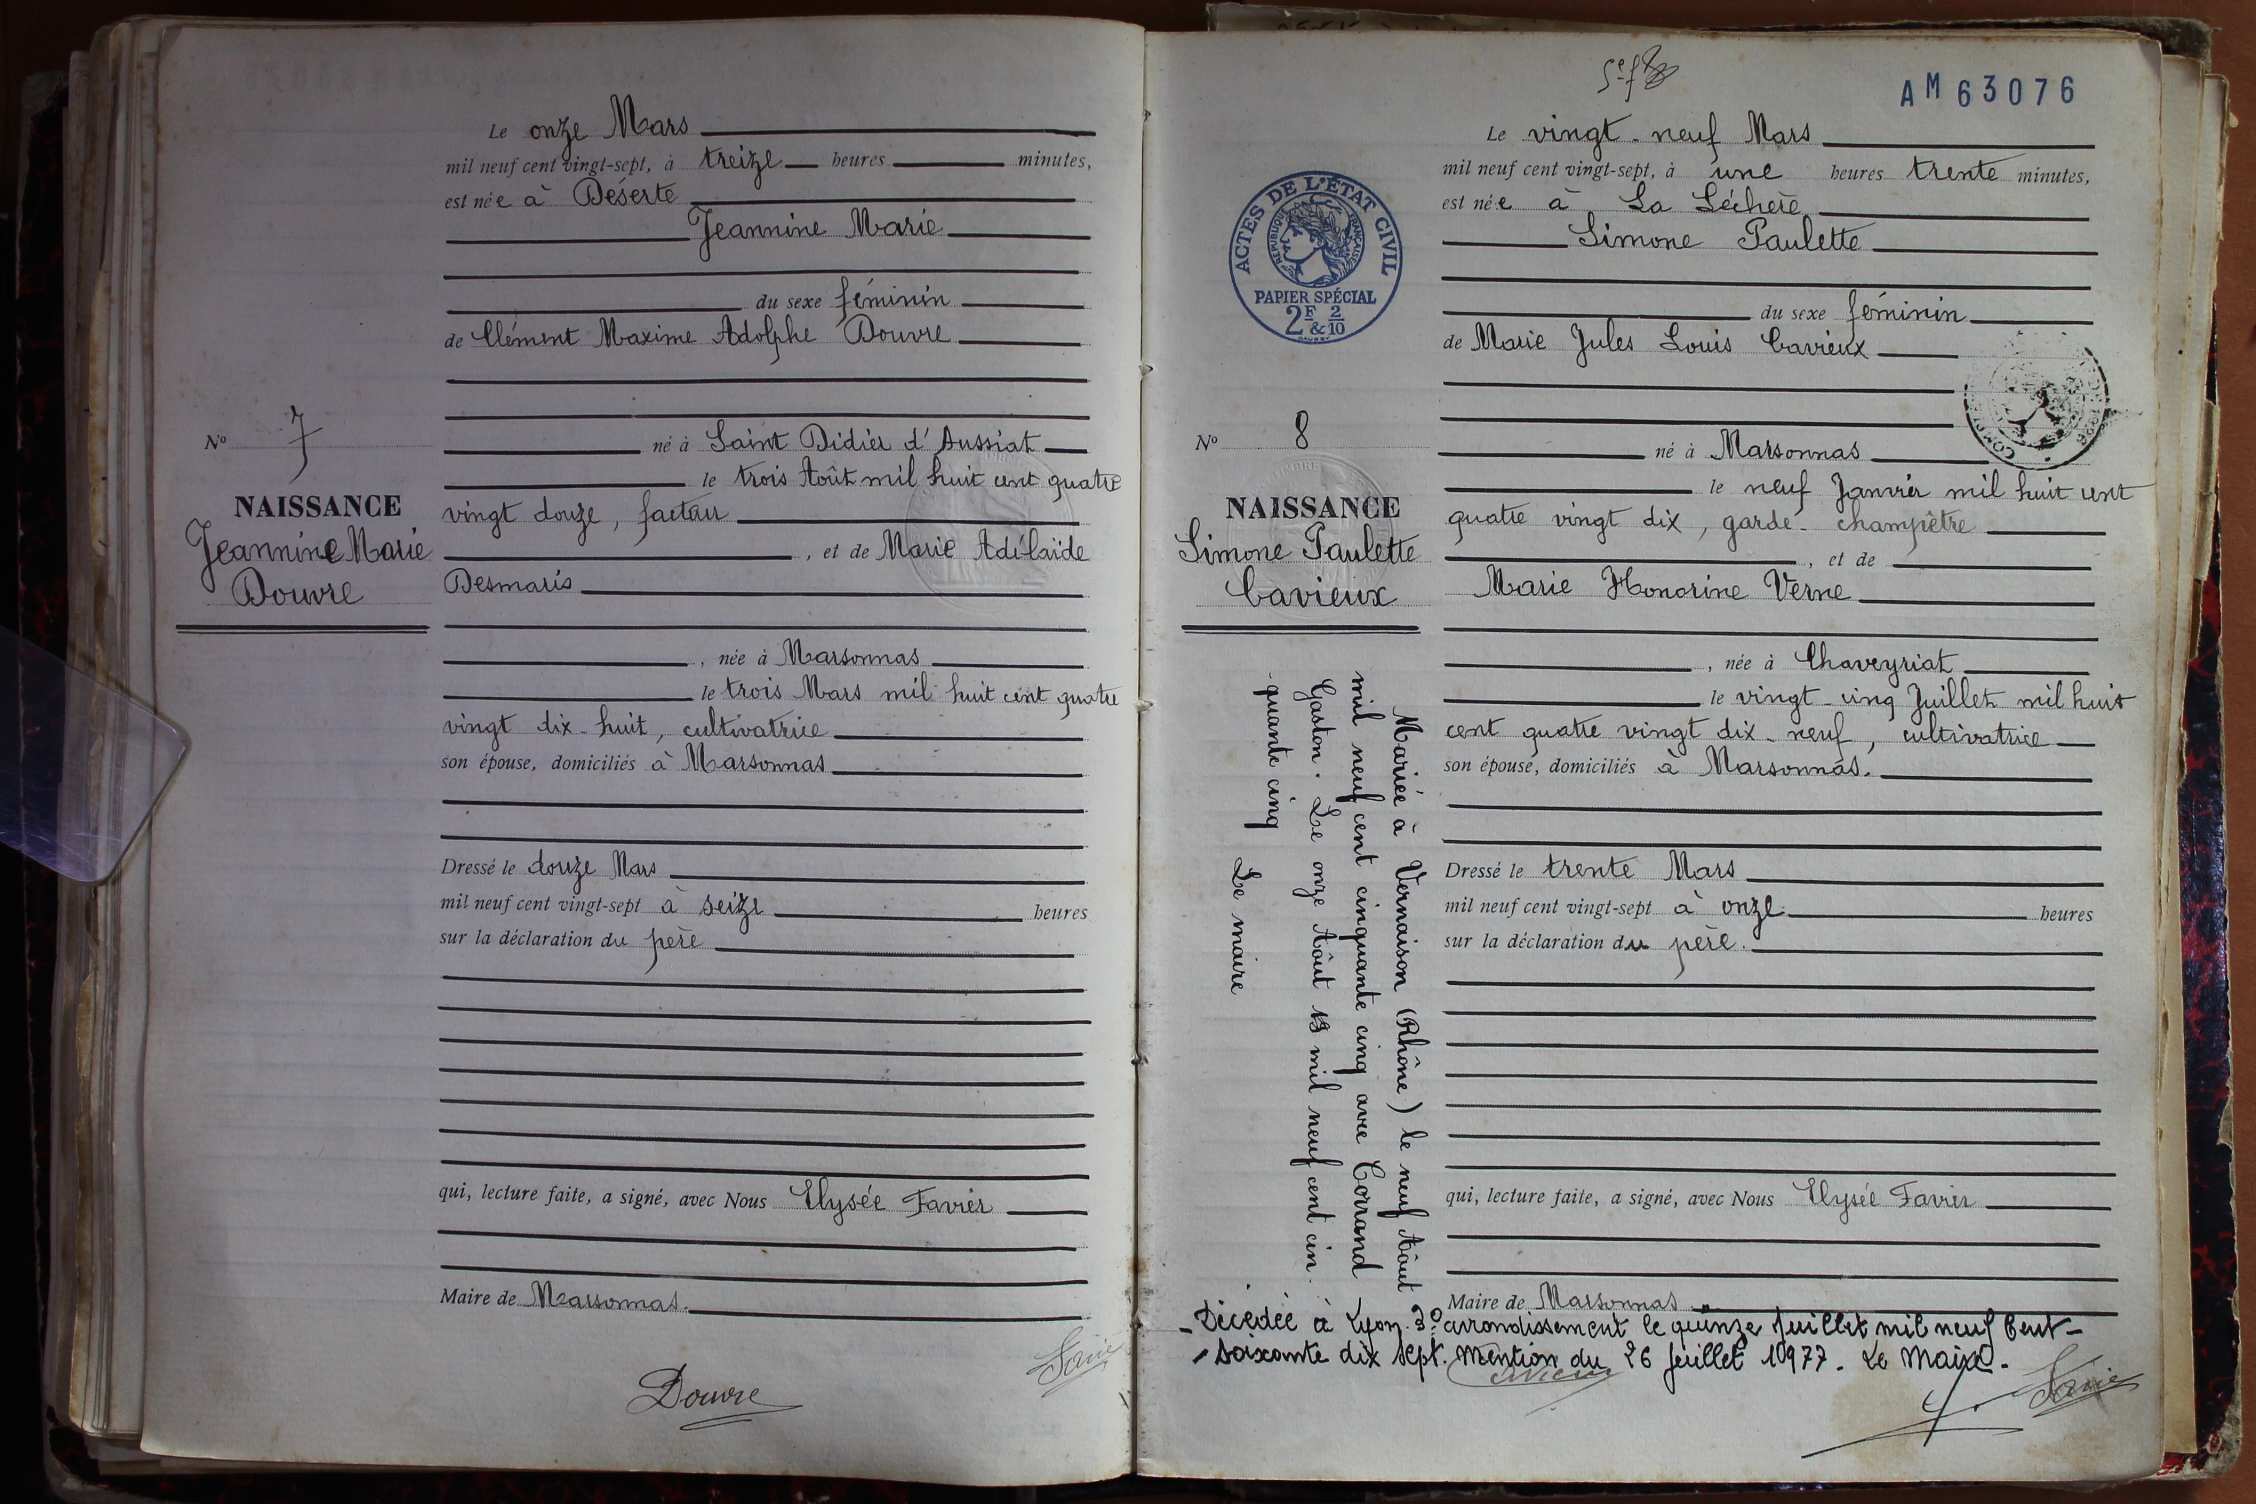 Le onze Mars
mil neuf cent vingt-sept, à treize heures minutes,
est née à Déserte
Jeannine Marie
du sexe féminin
de Clément Maxime Adolphe Douvre
né à Saint Didier d'Aussiat
le trois Août mil huit cent quatre
vingt douze, facteur
, et de Marie Adélaïde
Desmaris
, née à Marsonnas
le trois Mars mil huit cent quatre
vingt dix-huit, cultivatrice
son épouse, domiciliés à Marsonnas
Dressé le douze Mars
mil neuf cent vingt-sept à seize heures
sur la déclaration du père
qui, lecture faite, a signé, avec Nous Elysée Favier
Maire de Marsonnas.
Douvre
No 7
NAISSANCE
Jeannine Marie
Douvre
AM 63076
Le vingt-neuf Mars
mil neuf cent vingt-sept, à une heures trente minutes,
est née à La Léchère
Simone Paulette
du sexe féminin
de Marie Jules Louis Cavieux
né à Marsonnas
le neuf Janvier mil huit cent
quatre vingt dix, garde-champêtre
, et de
Marie Honorine Verne
, née à Chaveyriat
le vingt-cinq Juillet mil huit
cent quatre vingt dix-neuf, cultivatrice
son épouse, domiciliés à Marsonnas.
Dressé le trente Mars
mil neuf cent vingt-sept à onze heures
sur la déclaration du père.
qui, lecture faite, a signé, avec Nous Elysée Favier
Maire de Marsonnas
ACTES DE L'ÉTAT CIVIL
RÉPUBLIQUE FRANÇAISE
PAPIER SPÉCIAL
2F & 2/10
No 8
NAISSANCE
Simone Paulette
Cavieux
Mariée à Vernaison (Rhône) le neuf Août
mil neuf cent cinquante cinq avec Corrand
Gaston. Le onze Août mil neuf cent cin-
quante cinq Le maire
- Décédée à Lyon 3e arrondissement le quinze juillet mil neuf cent-
- soixante dix sept. Mention du 26 juillet 1977. Le Maire.